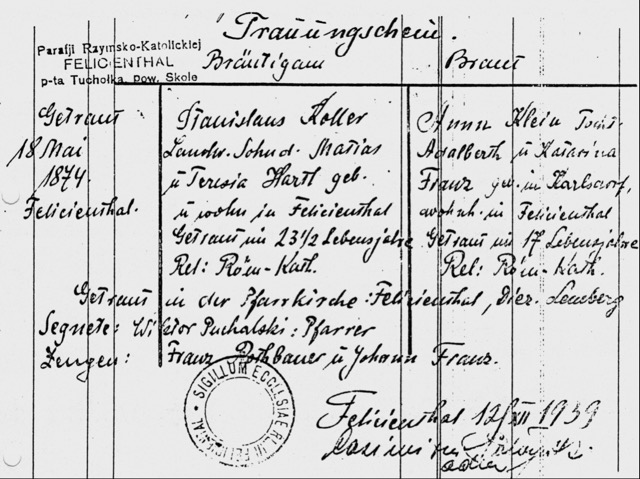 Trauungschein.
Parafji Rzymsko-Katolickiej
FELICIENTHAL
p-ta Tuchołka, pow. Skole
Bräutigam Braut
Getraut
18 Mai
1874.
Felicienthal.
Stanislaus Koller
Landw. Sohn d. Matias
u Teresia Hartl geb.
u wohn in Felicienthal
Getraut im 23 1/2 Lebensjahre
Rel: Röm-Kath.
Anna Klein
Adalberth u Katarina
Franz in Karlsdorf,
wohnh. in Felicienthal
Getraut im 17 Lebensjahre
Rel: Röm-Kath.
Getraut in der Pfarrkirche: Felicienthal, Diez. Lemberg
Segnete: Wiktor Puchalski: Pfarrer
Zeugen: Franz Rothbauer u Johann Franz.
SIGILLUM ECCLESIAE
Felicienthal 12/XII 1939